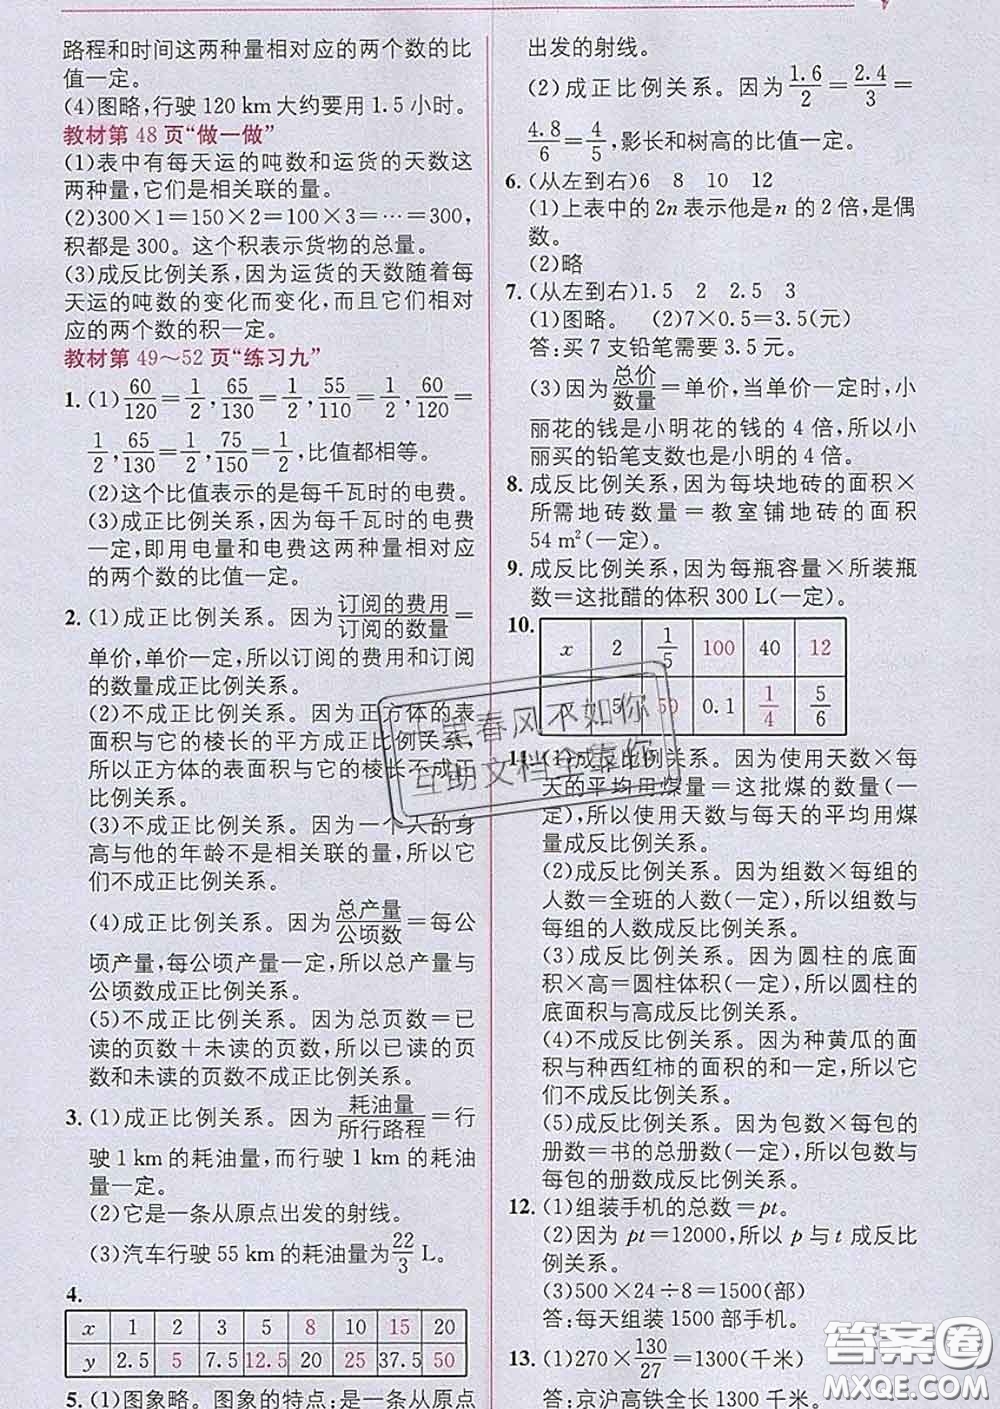 路程和时间这两种量相对应的两个数的比
值一定。
(4)图略,行驶 120 km 大约要用 1.5 小时。
教材第 48 页“做一做”
(1)表中有每天运的吨数和运货的天数这
两种量,它们是相关联的量。
(2)300×1=150×2=100×3=…=300,
积都是 300。这个积表示货物的总量。
(3)成反比例关系,因为运货的天数随着每
天运的吨数的变化而变化,而且它们相对
应的两个数的积一定。
教材第 49～52 页“练习九”
1. (1)60/120=1/2,65/130=1/2,55/110=1/2,60/120=
1/2,65/130=1/2,75/150=1/2,比值都相等。
(2)这个比值表示的是每千瓦时的电费。
(3)成正比例关系,因为每千瓦时的电费
一定,即用电量和电费这两种量相对应
的两个数的比值一定。
2. (1)成正比例关系。因为订阅的费用/订阅的数量=
单价,单价一定,所以订阅的费用和订阅
的数量成正比例关系。
(2)不成正比例关系。因为正方体的表
面积与它的棱长的平方成正比例关系,
所以正方体的表面积与它的棱长不成正
比例关系。
(3)不成正比例关系。因为一个人的身
高与他的年龄不是相关联的量,所以它
们不成正比例关系。
(4)成正比例关系。因为总产量/公顷数=每公
顷产量,每公顷产量一定,所以总产量与
公顷数成正比例关系。
(5)不成正比例关系。因为总页数=已
读的页数+未读的页数,所以已读的页
数和未读的页数不成正比例关系。
3. (1)成正比例关系。因为耗油量/所行路程=行
驶 1 km 的耗油量,而行驶 1 km 的耗油
量一定。
(2)它是一条从原点出发的射线。
(3)汽车行驶 55 km 的耗油量为22/3 L。
4.
x 1 2 3 5 8 10 15 20
y 2.5 5 7.5 12.5 20 25 37.5 50
5. (1)图象略。图象的特点:是一条从原点
出发的射线。
(2)成正比例关系。因为1.6/2=2.4/3=
4.8/6=4/5,影长和树高的比值一定。
6. (从左到右)6 8 10 12
(1)上表中的 2n 表示他是 n 的 2 倍,是偶
数。
(2)略
7. (从左到右)1.5 2 2.5 3
(1)图略。 (2)7×0.5=3.5(元)
答:买 7 支铅笔需要 3.5 元。
(3)因为总价/数量=单价,当单价一定时,小
丽花的钱是小明花的钱的 4 倍,所以小
丽买的铅笔支数也是小明的 4 倍。
8. 成反比例关系,因为每块地砖的面积×
所需地砖数量=教室铺地砖的面积
54 m²(一定)。
9. 成反比例关系,因为每瓶容量×所装瓶
数=这批醋的体积 300 L(一定)。
10.
x 2 1/5 100 40 12
5 50 0.1 1/4 5/6
11. (1)成反比例关系。因为使用天数×每
天的平均用煤量=这批煤的数量(一
定),所以使用天数与每天的平均用煤
量成反比例关系。
(2)成反比例关系。因为组数×每组的
人数=全班的人数(一定),所以组数与
每组的人数成反比例关系。
(3)成反比例关系。因为圆柱的底面
积×高=圆柱体积(一定),所以圆柱的
底面积与高成反比例关系。
(4)不成反比例关系。因为种黄瓜的面
积与种西红柿的面积的和一定,所以它
们不成反比例关系。
(5)成反比例关系。因为包数×每包的
册数=书的总册数(一定),所以包数与
每包的册数成反比例关系。
12. (1)组装手机的总数=pt。
(2)因为 pt=12000,所以 p 与 t 成反比
例关系。
(3)500×24÷8=1500(部)
答:每天组装 1500 部手机。
13. (1)270×130/27=1300(千米)
答:京沪高铁全长 1300 千米。
十里春风不如你
互助文档全靠你
答案圈
MXQE.COM